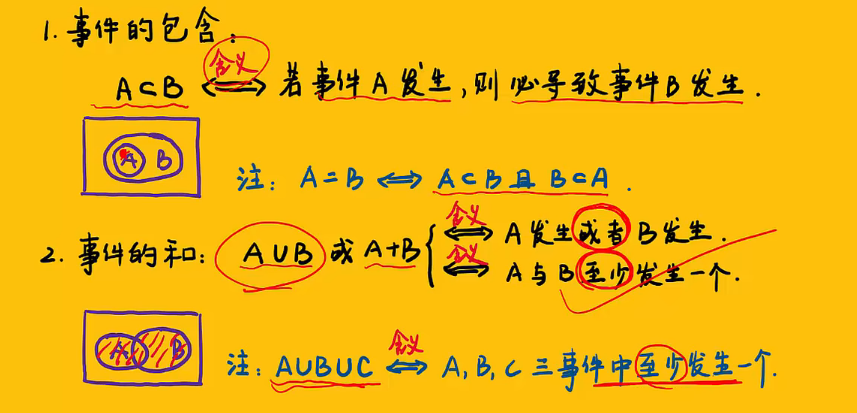 1. 事件的包含:
含义
A⊂B ⟺ 若事件A发生,则必导致事件B发生.
A B
注: A=B ⟺ A⊂B且B⊂A.
含义
2. 事件的和: A∪B 或 A+B { ⟺ A发生或者B发生.
含义
⟺ A与B至少发生一个.
A B
含义
注: A∪B∪C ⟺ A,B,C三事件中至少发生一个.